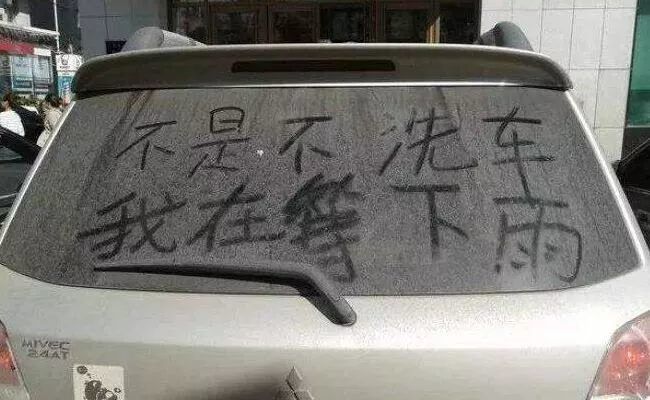 不是不洗车
我在等下雨
MIVEC
24AT